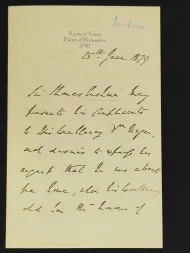 House of Commons
Palace of Westminster
S.W.
25th June 1879
Sir Thomas Erskine May
presents his compliments
to His Excellency
and desires to express his
regret that he was absent
from home, when His Excellency
did him the honor of